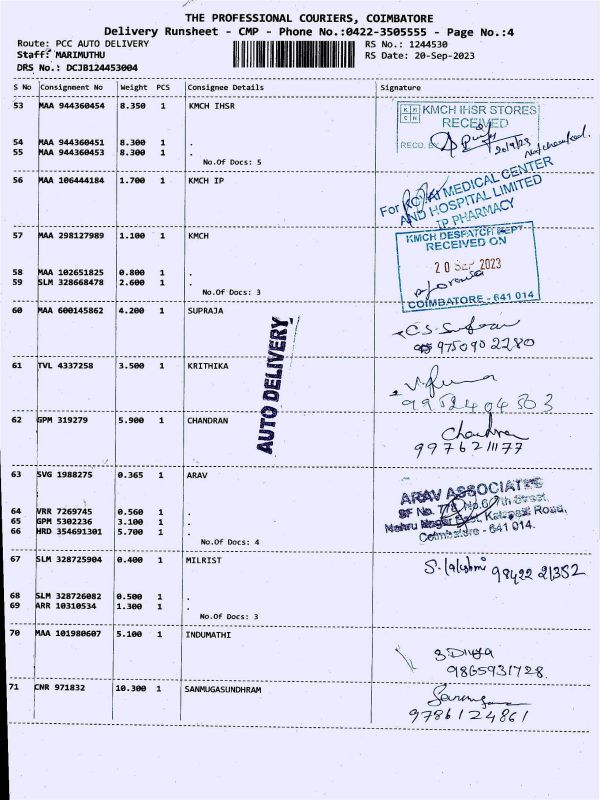 THE PROFESSIONAL COURIERS, COIMBATORE
Delivery Runsheet - CMP - Phone No.:0422-3505555 - Page No.:4
Route: PCC AUTO DELIVERY RS No.: 1244530
Staff: MARIMUTHU RS Date: 20-Sep-2023
DRS No.: DCJB124453004
S No Consignment No Weight PCS Consignee Details Signature
53 MAA 944360454 8.350 1 KMCH IHSR
KMCH IHSR STORES
RECEIVED
RECD. BY 20/9/23
54 MAA 944360451 8.300 1 .
55 MAA 944360453 8.300 1 .
No.Of Docs: 5
56 MAA 106444184 1.700 1 KMCH IP
MEDICAL CENTER
AND HOSPITAL LIMITED
IP PHARMACY
57 MAA 298127989 1.100 1 KMCH
KMCH DESPATCH DEPT
RECEIVED ON
20 SEP 2023
COIMBATORE - 641 014
58 MAA 102651825 0.800 1 .
59 SLM 328668478 2.600 1 .
No.Of Docs: 3
60 MAA 600145862 4.200 1 SUPRAJA
9750902280
AUTO DELIVERY
61 TVL 4337258 3.500 1 KRITHIKA
9952404503
62 GPM 319279 5.900 1 CHANDRAN
Chandran
9976211177
63 SVG 1988275 0.365 1 ARAV
ARAV ASSOCIATES
SF No. 7th Street,
Nehru Nagar East, Kalapatti Road,
Coimbatore - 641 014.
64 VRR 7269745 0.560 1 .
65 GPM 5302236 3.100 1 .
66 HRD 354691301 5.700 1 .
No.Of Docs: 4
67 SLM 328725904 0.400 1 MILRIST
S. lakshmi 98422 21352
68 SLM 328726082 0.500 1 .
69 ARR 10310534 1.300 1 .
No.Of Docs: 3
70 MAA 101980607 5.100 1 INDUMATHI
Divya
9865931728
71 CNR 971832 10.300 1 SANMUGASUNDHRAM
9786124861